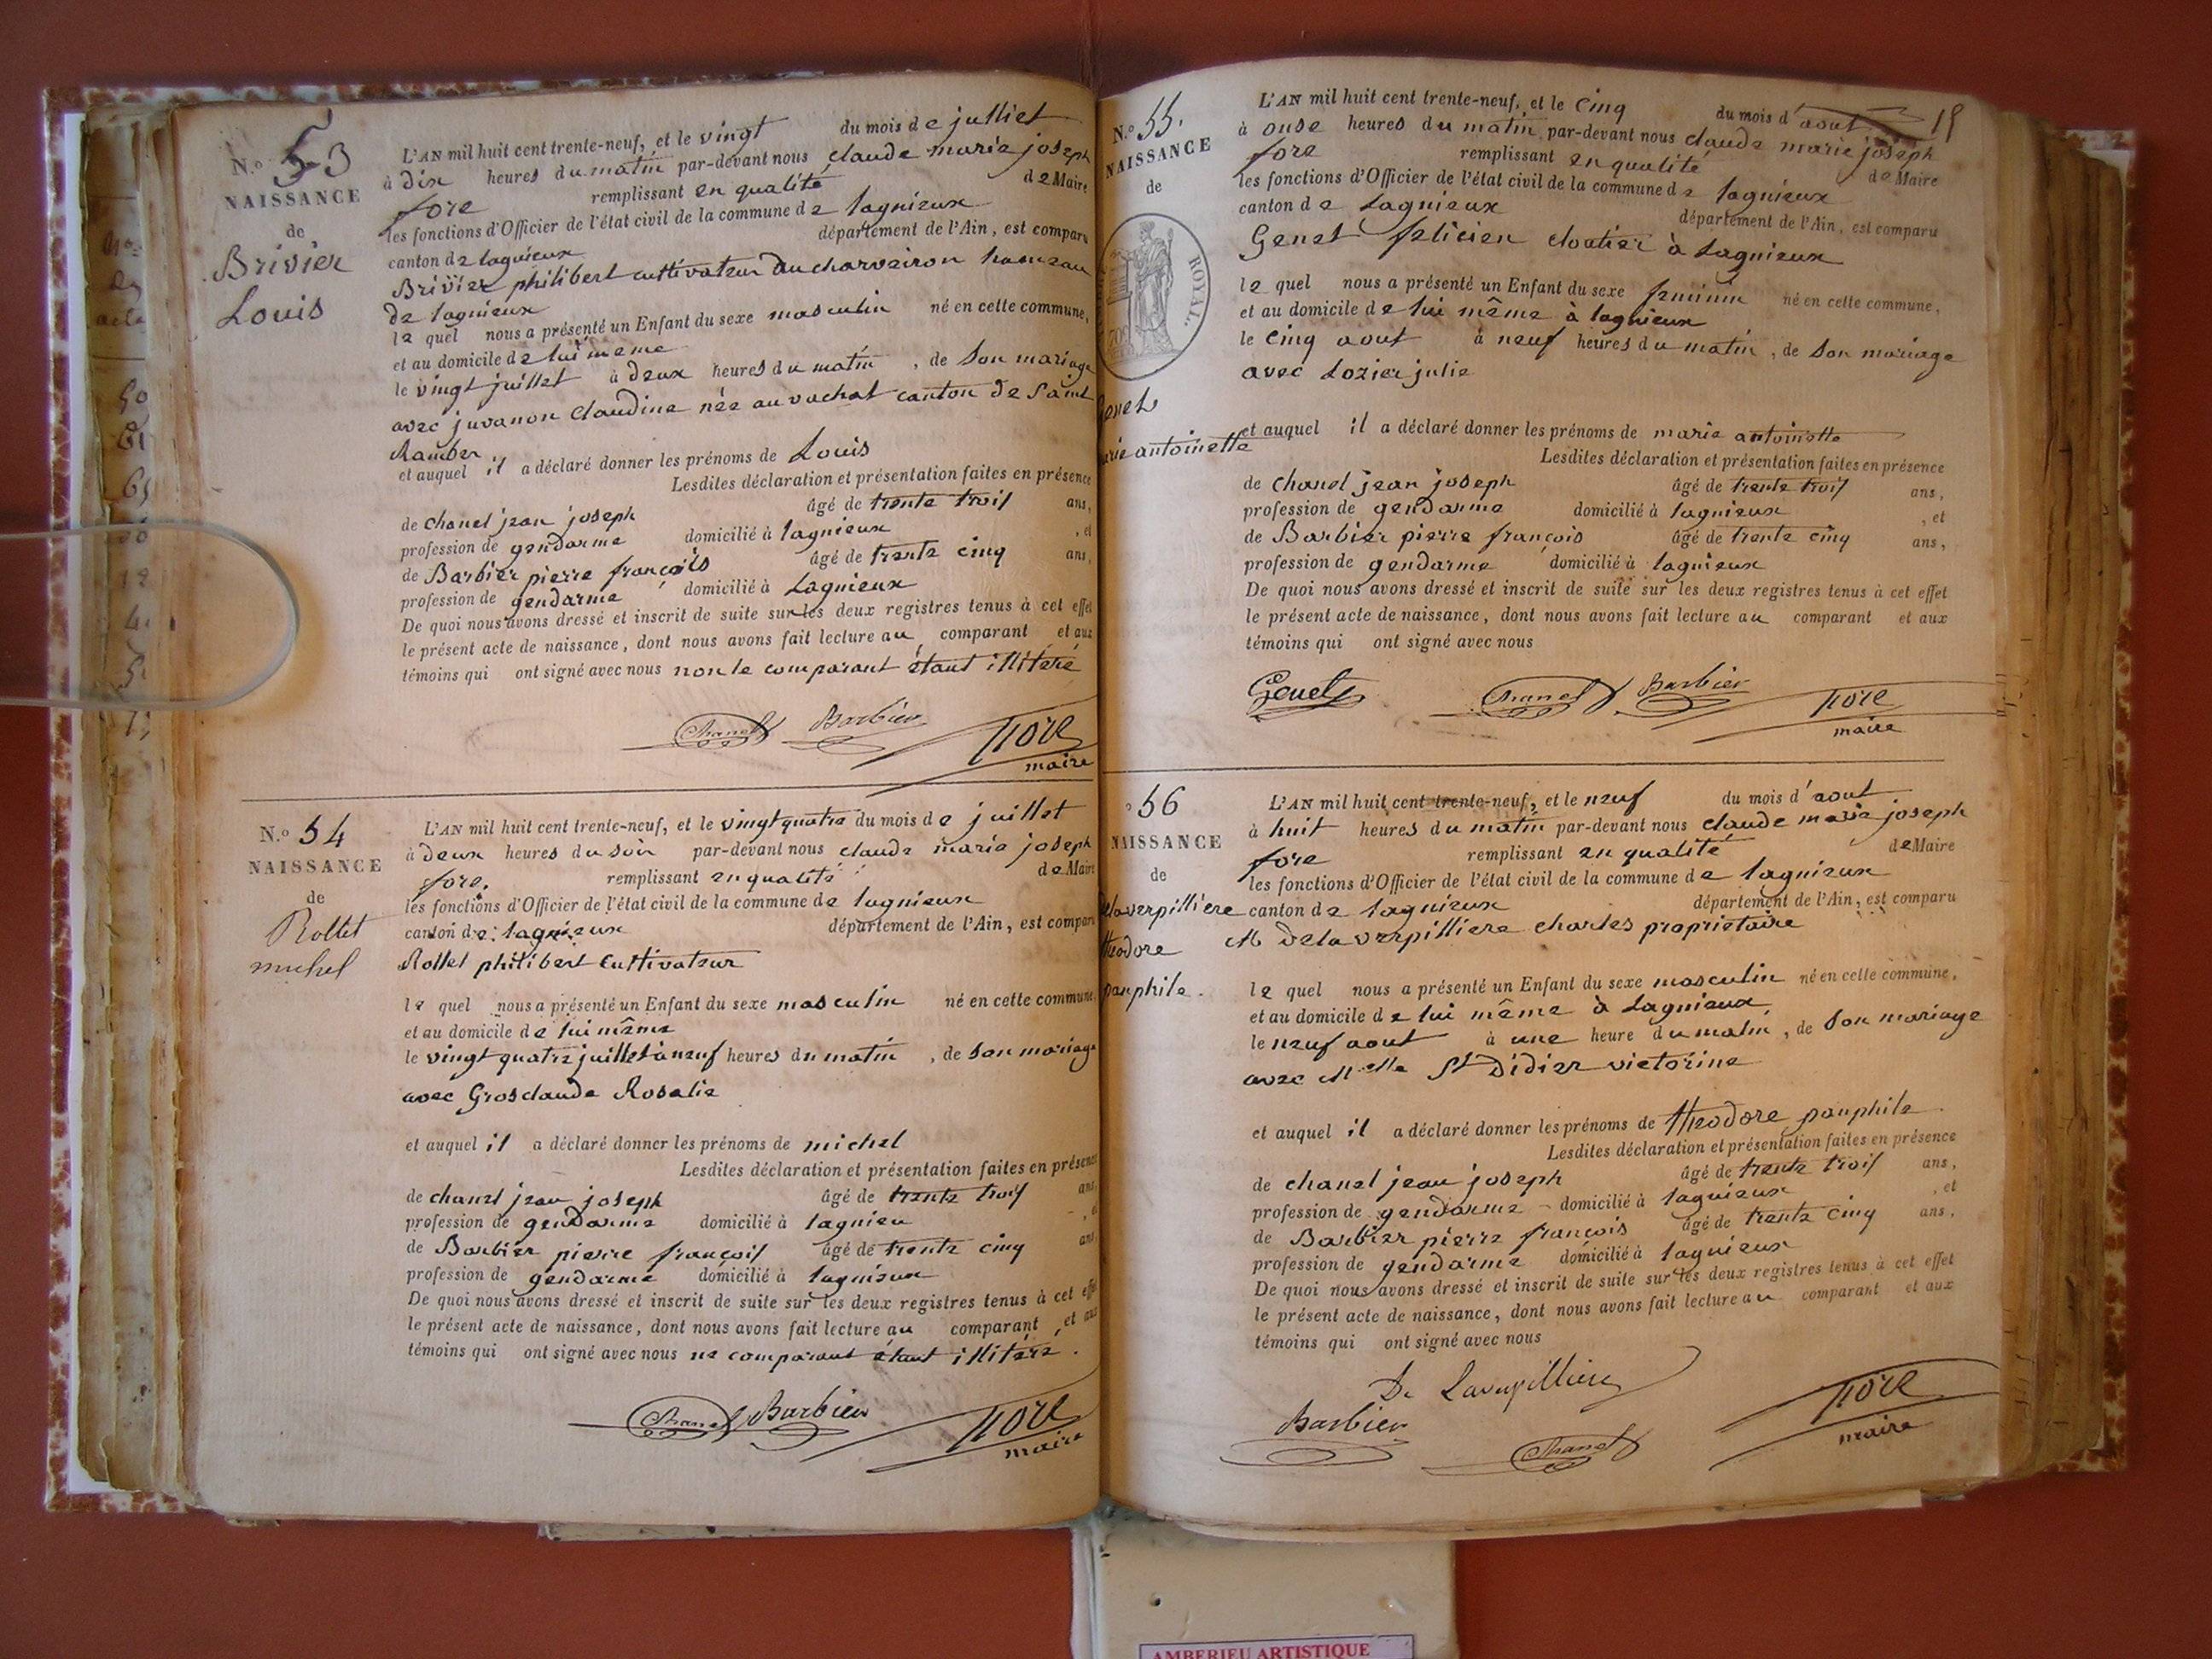 N.º 53
NAISSANCE
de
Brivier
Louis
L'AN mil huit cent trente-neuf, et le vingt du mois de julliet
à dix heures du matin par-devant nous claude marie joseph
fore remplissant en qualité de Maire
les fonctions d'Officier de l'état civil de la commune de lagnieux
canton de lagnieux département de l'Ain, est comparu
Brivier philibert cultivateur du charveiron hameau
de lagnieux
le quel nous a présenté un Enfant du sexe masculin né en cette commune,
et au domicile de lui meme
le vingt juillet à deux heures du matin, de son mariage
avec juvanon claudine née au vachat canton de Saint
Rambert
et auquel il a déclaré donner les prénoms de Louis
Lesdites déclaration et présentation faites en présence
de chanel jean joseph âgé de trente trois ans,
profession de gendarme domicilié à lagnieux, et
de Barbier pierre françois âgé de trente cinq ans,
profession de gendarme domicilié à Lagnieux
De quoi nous avons dressé et inscrit de suite sur les deux registres tenus à cet effet
le présent acte de naissance, dont nous avons fait lecture au comparant et aux
témoins qui ont signé avec nous non le comparant étant illitéré
Chanel Barbier fore
maire
N.º 54
NAISSANCE
de
Rollet
michel
L'AN mil huit cent trente-neuf, et le vingt quatre du mois de juillet
à deux heures du soir par-devant nous claude marie joseph
fore. remplissant en qualité de Maire
les fonctions d'Officier de l'état civil de la commune de lagnieux
canton de lagnieux département de l'Ain, est comparu
Rollet philibert cultivateur
le quel nous a présenté un Enfant du sexe masculin né en cette commune
et au domicile de lui même
le vingt quatre juillet à neuf heures du matin, de son mariage
avec Grosclaude Rosalie
et auquel il a déclaré donner les prénoms de michel
Lesdites déclaration et présentation faites en présence
de chanel jean joseph âgé de trente trois ans,
profession de gendarme domicilié à lagnieu
de Barbier pierre françois âgé de trente cinq ans
profession de gendarme domicilié à lagnieux
De quoi nous avons dressé et inscrit de suite sur les deux registres tenus à cet effet
le présent acte de naissance, dont nous avons fait lecture au comparant, et aux
témoins qui ont signé avec nous ne comparant étant illitéré.
Chanel Barbier fore
maire
19
N.º 55.
NAISSANCE
de
ROYAL.
Genet
marie antoinette
L'AN mil huit cent trente-neuf, et le cinq du mois d'aout
à onse heures du matin par-devant nous claude marie joseph
fore remplissant en qualité de Maire
les fonctions d'Officier de l'état civil de la commune de lagnieux
canton de Lagnieux département de l'Ain, est comparu
Genet felicien cloutier à Lagnieux
le quel nous a présenté un Enfant du sexe feminin né en cette commune,
et au domicile de lui même à lagnieux
le cinq aout à neuf heures du matin, de son mariage
avec Lozier julie
et auquel il a déclaré donner les prénoms de marie antoinette
Lesdites déclaration et présentation faites en présence
de chanel jean joseph âgé de trente trois ans,
profession de gendarme domicilié à lagnieux, et
de Barbier pierre françois âgé de trente cinq ans,
profession de gendarme domicilié à lagnieux
De quoi nous avons dressé et inscrit de suite sur les deux registres tenus à cet effet
le présent acte de naissance, dont nous avons fait lecture au comparant et aux
témoins qui ont signé avec nous
Genet Chanel Barbier fore
maire
º 56
NAISSANCE
de
delaverpilliere
théodore
panphile.
L'AN mil huit cent trente-neuf, et le neuf du mois d'aout
à huit heures du matin par-devant nous claude marie joseph
fore remplissant en qualité de Maire
les fonctions d'Officier de l'état civil de la commune de lagnieux
canton de lagnieux département de l'Ain, est comparu
M delaverpilliere charles proprietaire
le quel nous a présenté un Enfant du sexe masculin né en cette commune,
et au domicile de lui même à Lagnieux
le neuf aout à une heure du matin, de son mariage
avec Melle St Didier victorine
et auquel il a déclaré donner les prénoms de théodore panphile
Lesdites déclaration et présentation faites en présence
de chanel jean joseph âgé de trente trois ans,
profession de gendarme domicilié à lagnieux, et
de Barbier pierre françois âgé de trente cinq ans,
profession de gendarme domicilié à lagnieux
De quoi nous avons dressé et inscrit de suite sur les deux registres tenus à cet effet
le présent acte de naissance, dont nous avons fait lecture au comparant et aux
témoins qui ont signé avec nous
De Laverpilliere
Barbier Chanel fore
maire
AMBERIEU ARTISTIQUE